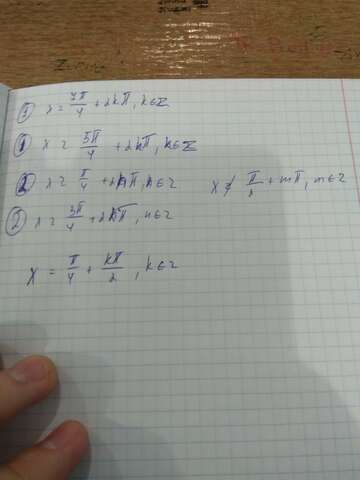 ① x = 7π/4 + 2kπ, k∈Z
① x = 5π/4 + 2kπ, k∈Z
② x = π/4 + 2kπ, k∈z
x ≠ π/2 + mπ, m∈z
② x = 3π/4 + 2kπ, k∈z
x = π/4 + kπ/2, k∈z